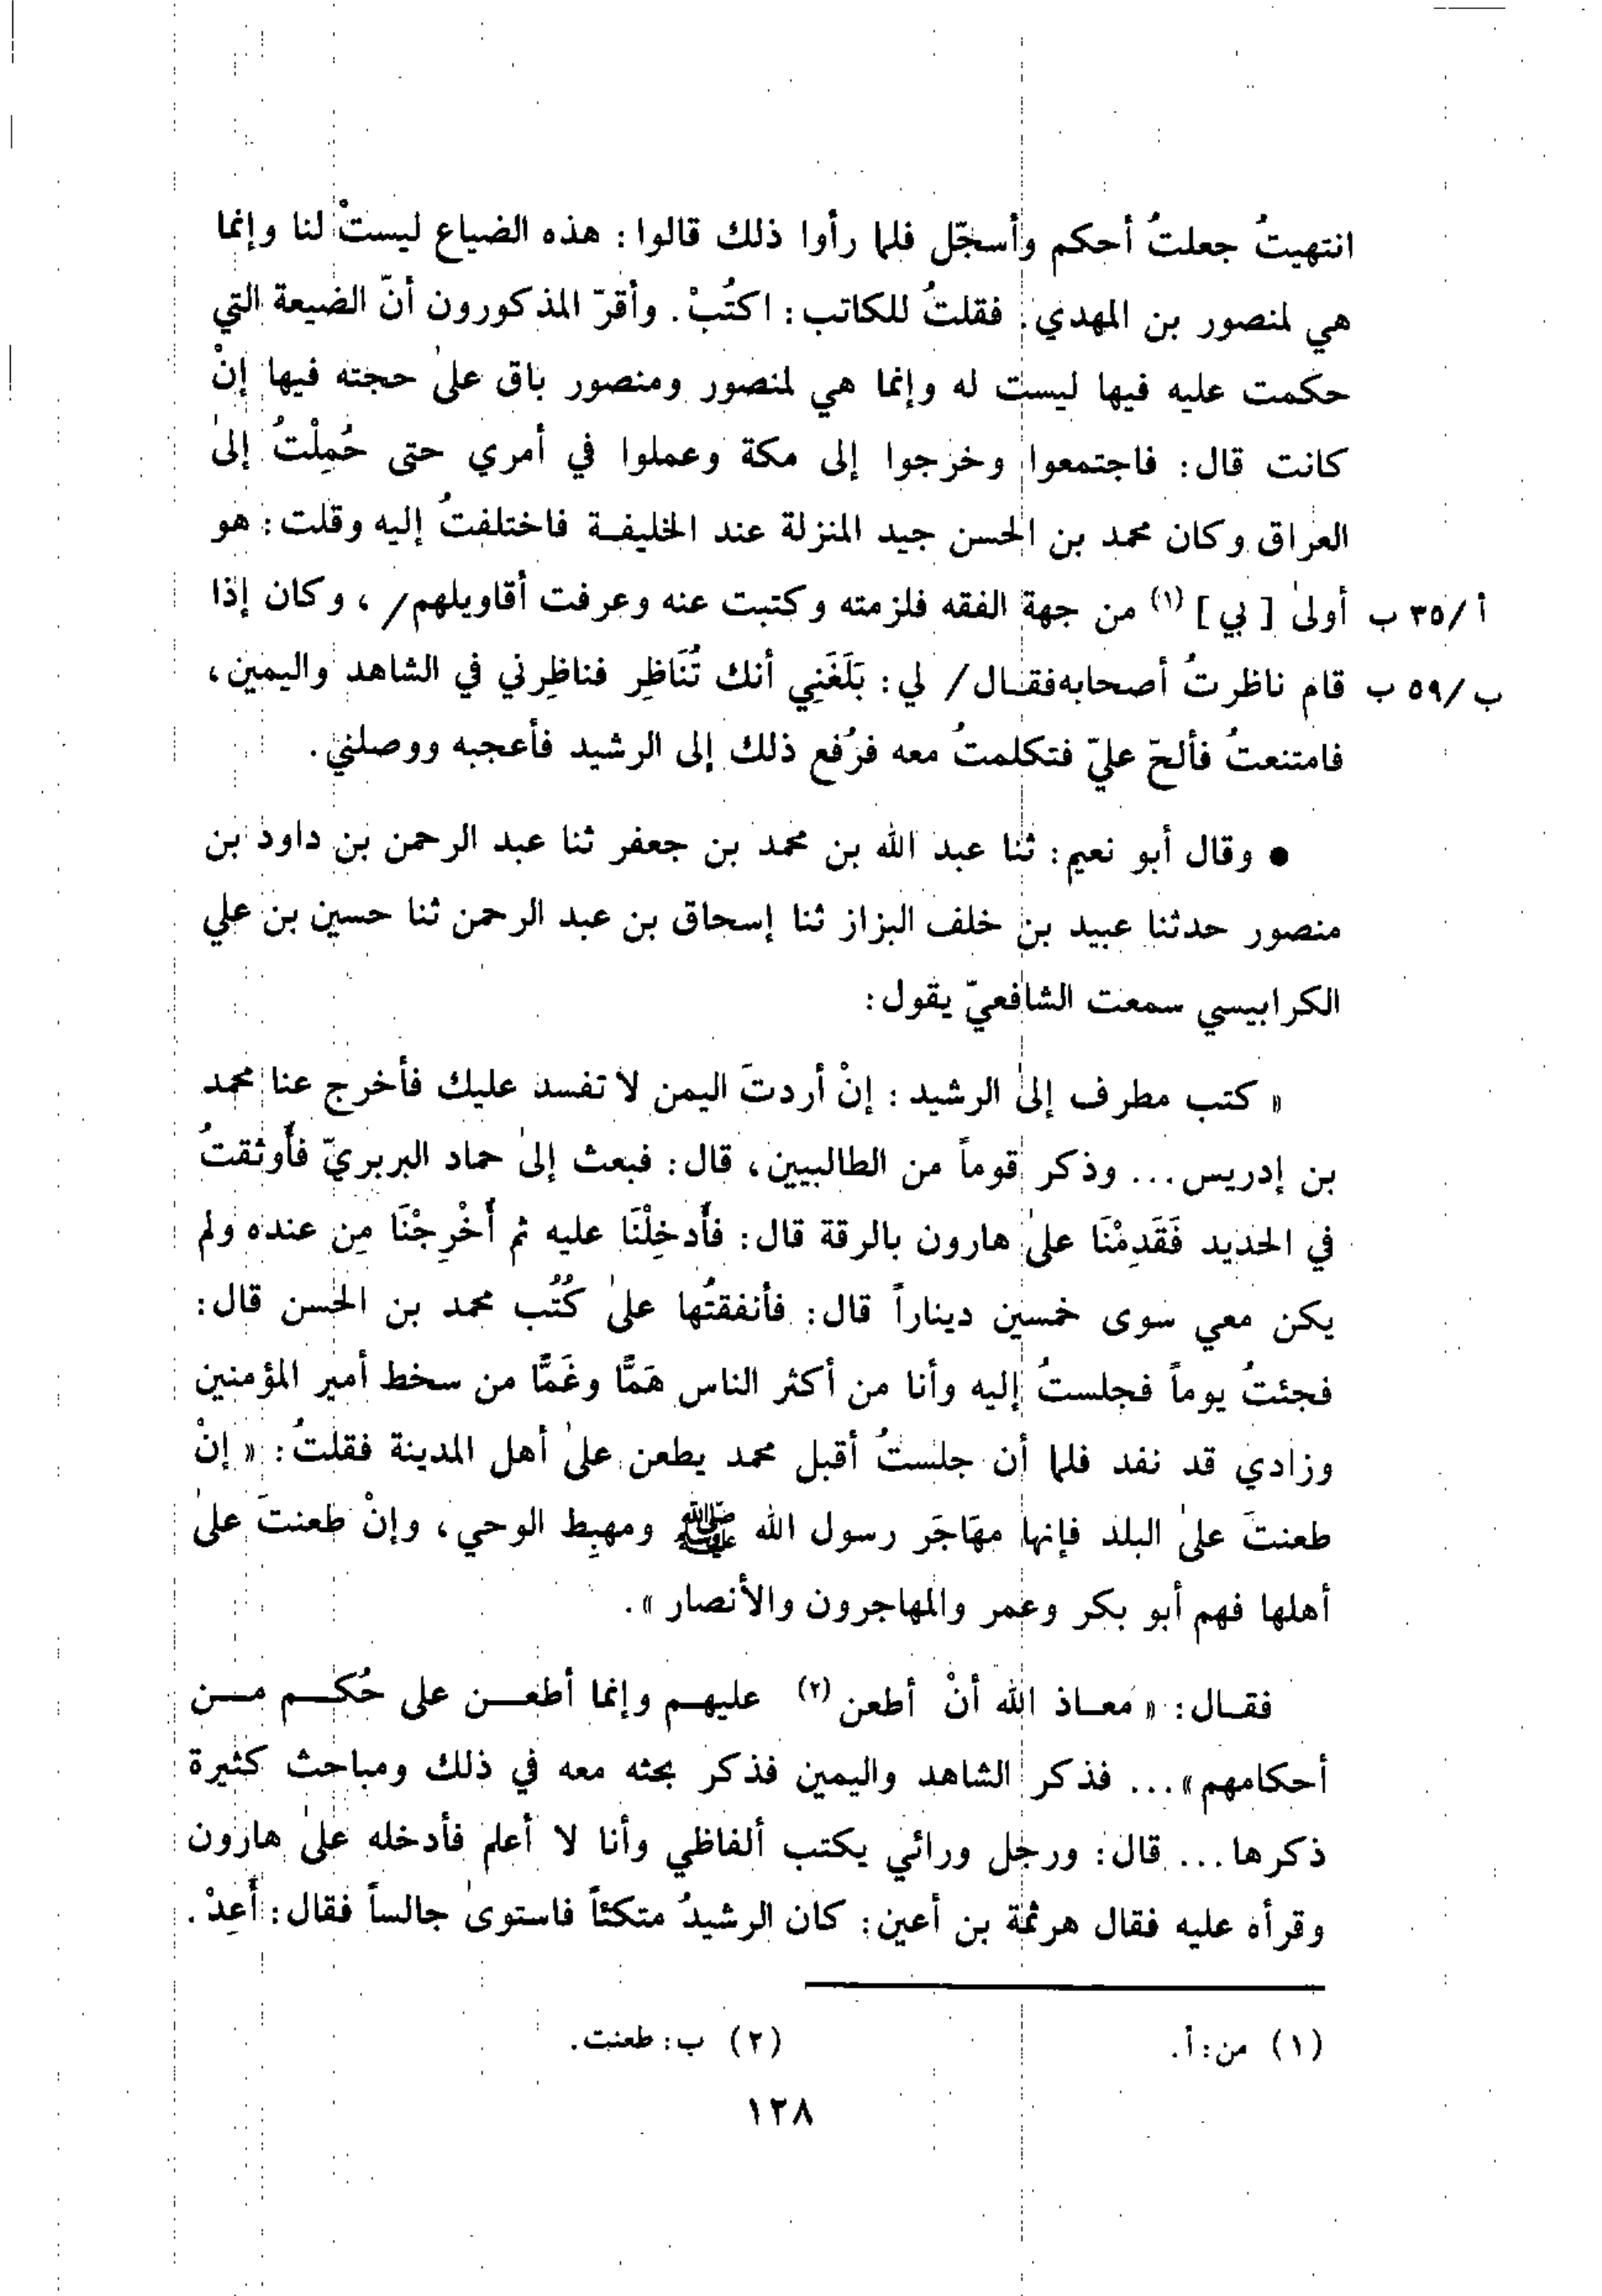 انتهيتُ جعلتُ أحكم وأسجّل فلما رأوا ذلك قالوا: هذه الضياع ليستْ لنا وإنما
هي لمنصور بن المهدي. فقلتُ للكاتب: اكتُبْ. وأقرّ المذكورون أنّ الضيعة التي
حكمت عليه فيها ليست له وإنما هي لمنصور ومنصور باق علىٰ حجته فيها إنْ
كانت قال: فاجتمعوا وخرجوا إلى مكة وعملوا في أمري حتى حُمِلْتُ إلىٰ
العراق وكان محمد بن الحسن جيد المنزلة عند الخليفة فاختلفتُ إليه وقلت: هو
أ/٣٥ ب أولىٰ [ بي ] (١) من جهة الفقه فلزمته وكتبت عنه وعرفت أقاويلهم/ ، وكان إذا
ب/٥٩ ب قام ناظرتُ أصحابه فقال/ لي: بَلَغَنِي أنك تُنَاظِر فناظِرني في الشاهد واليمين،
فامتنعتُ فألحّ عليّ فتكلمتُ معه فرُفع ذلك إلى الرشيد فأعجبه ووصلني.
● وقال أبو نعيم: ثنا عبد الله بن محمد بن جعفر ثنا عبد الرحمن بن داود بن
منصور حدثنا عبيد بن خلف البزاز ثنا إسحاق بن عبد الرحمن ثنا حسين بن علي
الكرابيسي سمعت الشافعيّ يقول:
« كتب مطرف إلىٰ الرشيد : إنْ أردتَ اليمن لا تفسد عليك فأخرج عنا محمد
بن إدريس... وذكر قوماً من الطالبيين، قال: فبعث إلىٰ حماد البربريّ فأَوثقتُ
في الحديد فَقَدِمْنَا علىٰ هارون بالرقة قال: فأَدخِلْنَا عليه ثم أَخْرِجْنَا مِن عنده ولم
يكن معي سوى خمسين ديناراً قال: فأنفقتُها علىٰ كُتُب محمد بن الحسن قال:
فجئتُ يوماً فجلستُ إليه وأنا من أكثر الناس هَمًّا وغَمًّا من سخط أمير المؤمنين
وزادي قد نفد فلما أن جلستُ أقبل محمد يطعن علىٰ أهل المدينة فقلتُ: « إنْ
طعنتَ علىٰ البلد فإنها مهَاجَر رسول الله ﷺ ومهبِط الوحي، وإنْ طعنتَ علىٰ
أهلها فهم أبو بكر وعمر والمهاجرون والأنصار ».
فقال: « معاذ الله أنْ أطعن (٢) عليهم وإنما أطعن على حُكم من
أحكامهم»... فذكر الشاهد واليمين فذكر بحثه معه في ذلك ومباحث كثيرة
ذكرها... قال: ورجل ورائي يكتب ألفاظي وأنا لا أعلم فأدخله علىٰ هارون
وقرأه عليه فقال هرثمة بن أعين: كان الرشيدُ متكئاً فاستوىٰ جالساً فقال: أَعِدْ.
(١) من: أ. (٢) ب: طعنت.
١٢٨